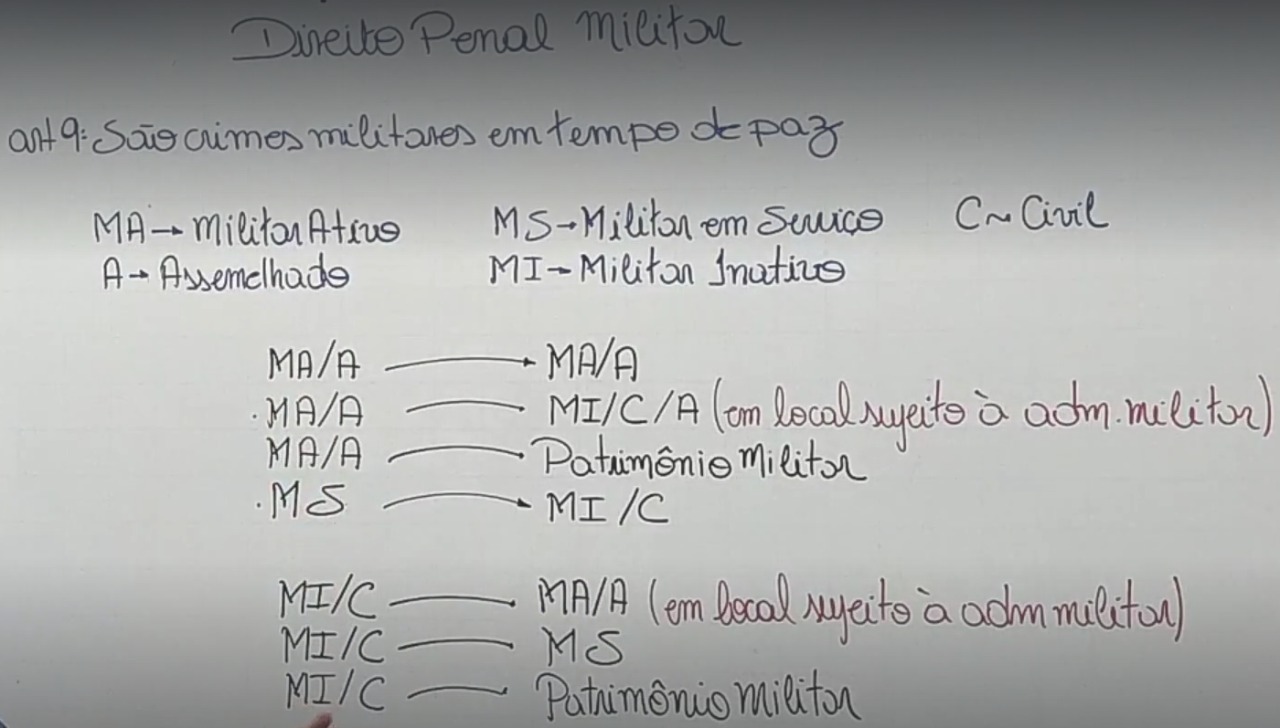 Direito Penal Militar
art 9: São crimes militares em tempo de paz
MA → Militar Ativo MS → Militar em Serviço C ~ Civil
A → Assemelhado MI → Militar Inativo
MA/A → MA/A
. MA/A — MI/C/A (em local sujeito à adm. militar)
MA/A — Patrimônio Militar
. MS → MI/C
MI/C — MA/A (em local sujeito à adm militar)
MI/C — MS
MI/C — Patrimônio Militar